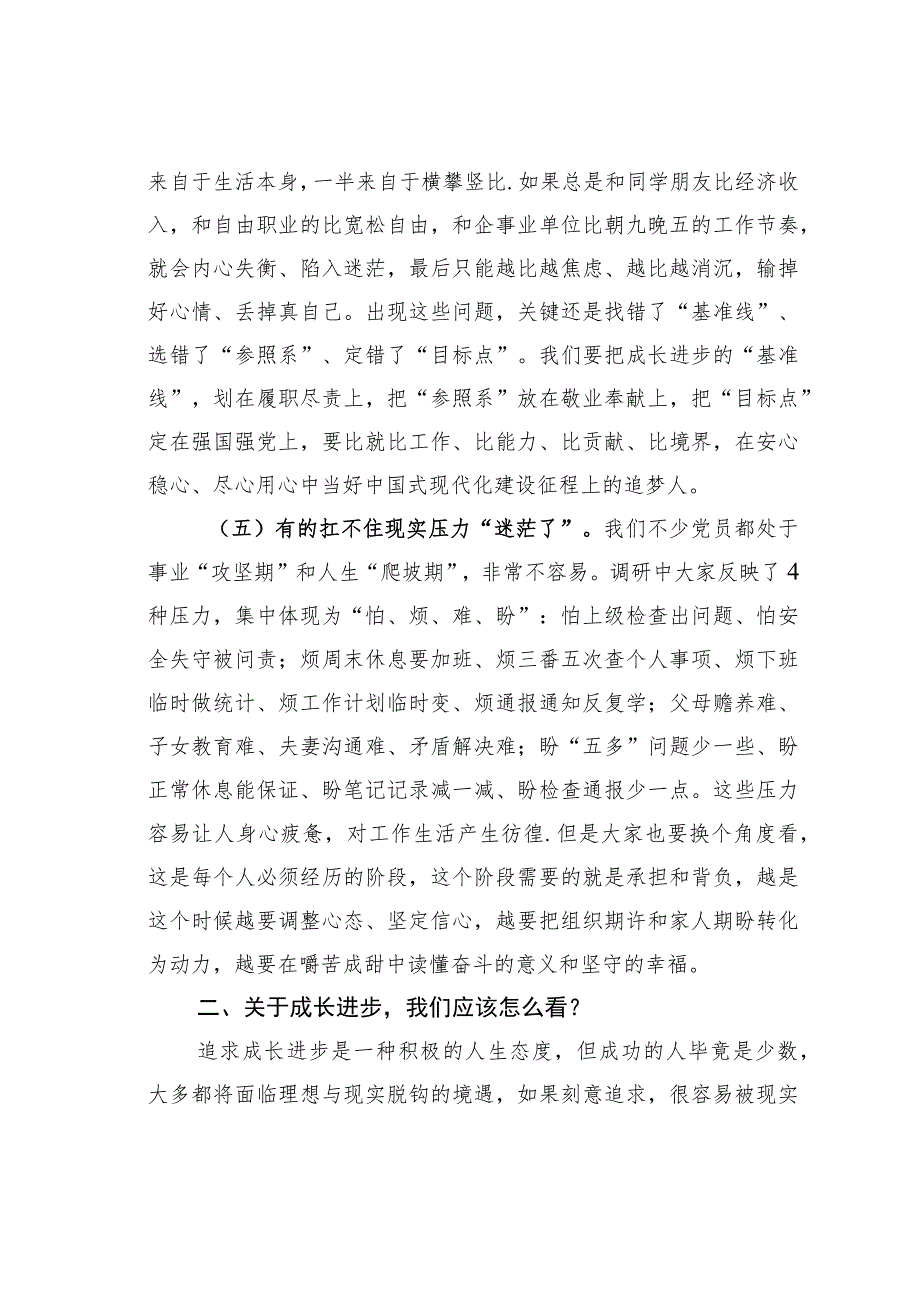 来自于生活本身，一半来自于横攀竖比.如果总是和同学朋友比经济收
入，和自由职业的比宽松自由，和企事业单位比朝九晚五的工作节奏，
就会内心失衡、陷入迷茫，最后只能越比越焦虑、越比越消沉，输掉
好心情、丢掉真自己。出现这些问题，关键还是找错了“基准线”、
选错了“参照系”、定错了“目标点”。我们要把成长进步的“基准
线”，划在履职尽责上，把“参照系”放在敬业奉献上，把“目标点”
定在强国强党上，要比就比工作、比能力、比贡献、比境界，在安心
稳心、尽心用心中当好中国式现代化建设征程上的追梦人。
（五）有的扛不住现实压力“迷茫了”。我们不少党员都处于
事业“攻坚期”和人生“爬坡期”，非常不容易。调研中大家反映了4
种压力，集中体现为“怕、烦、难、盼”：怕上级检查出问题、怕安
全失守被问责；烦周末休息要加班、烦三番五次查个人事项、烦下班
临时做统计、烦工作计划临时变、烦通报通知反复学；父母赡养难、
子女教育难、夫妻沟通难、矛盾解决难；盼“五多”问题少一些、盼
正常休息能保证、盼笔记记录减一减、盼检查通报少一点。这些压力
容易让人身心疲惫，对工作生活产生彷徨.但是大家也要换个角度看，
这是每个人必须经历的阶段，这个阶段需要的就是承担和背负，越是
这个时候越要调整心态、坚定信心，越要把组织期许和家人期盼转化
为动力，越要在嚼苦成甜中读懂奋斗的意义和坚守的幸福。
二、关于成长进步，我们应该怎么看？
追求成长进步是一种积极的人生态度，但成功的人毕竟是少数，
大多都将面临理想与现实脱钩的境遇，如果刻意追求，很容易被现实